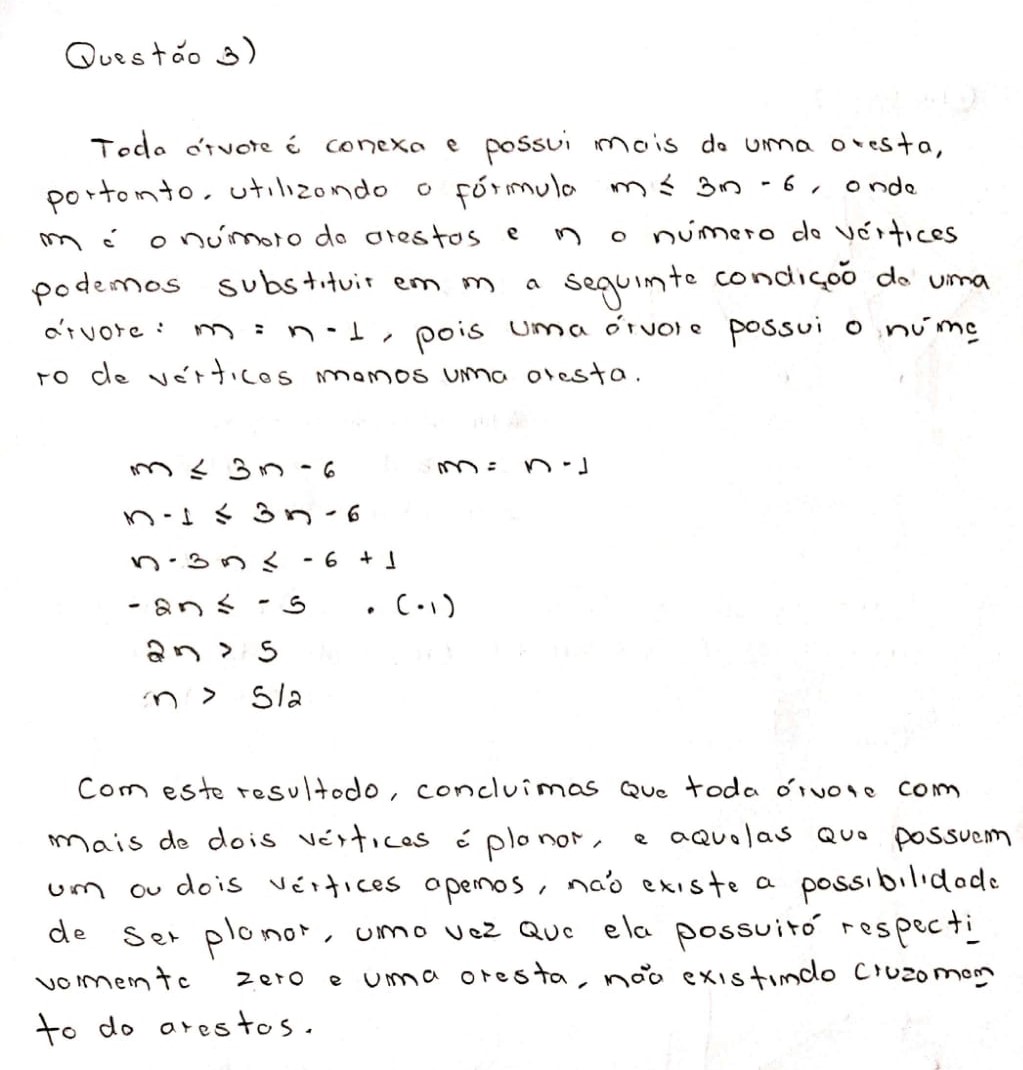 Questão 3)
Toda árvore é conexa e possui mais de uma aresta,
portanto, utilizando a fórmula m ≤ 3n - 6, onde
m é o número de arestas e n o número de vértices
podemos substituir em m a seguinte condição de uma
árvore: m = n - 1, pois uma árvore possui o núme
ro de vértices menos uma aresta.
m ≤ 3n - 6 m = n - 1
n - 1 ≤ 3n - 6
n - 3n ≤ - 6 + 1
- 2n ≤ - 5 . (-1)
2n > 5
n > 5/2
Com este resultado, concluímos que toda árvore com
mais de dois vértices é planar, e aquelas que possuem
um ou dois vértices apenas, não existe a possibilidade
de ser planar, uma vez que ela possuirá respecti
vamente zero e uma aresta, não existindo cruzamen
to de arestas.